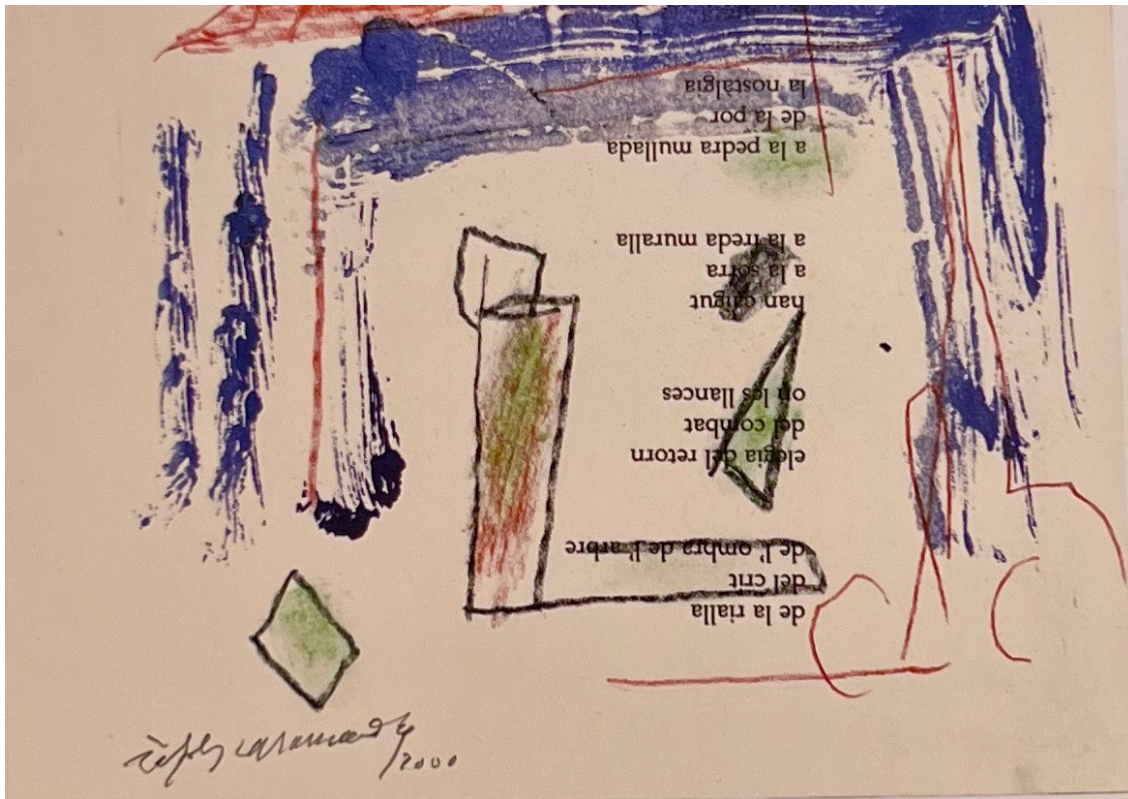 de la rialla
del crit
de l'ombra de l'arbre
elegia del retorn
del combat
on les llances
han caigut
a la sorra
a la freda muralla
a la pedra mullada
de la por
la nostàlgia
/2000